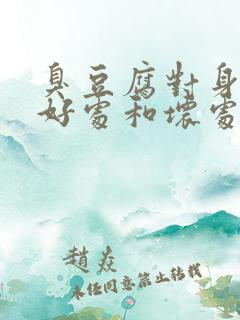 臭豆腐對身
好處和壞處
趙焱
未經同意禁止轉載